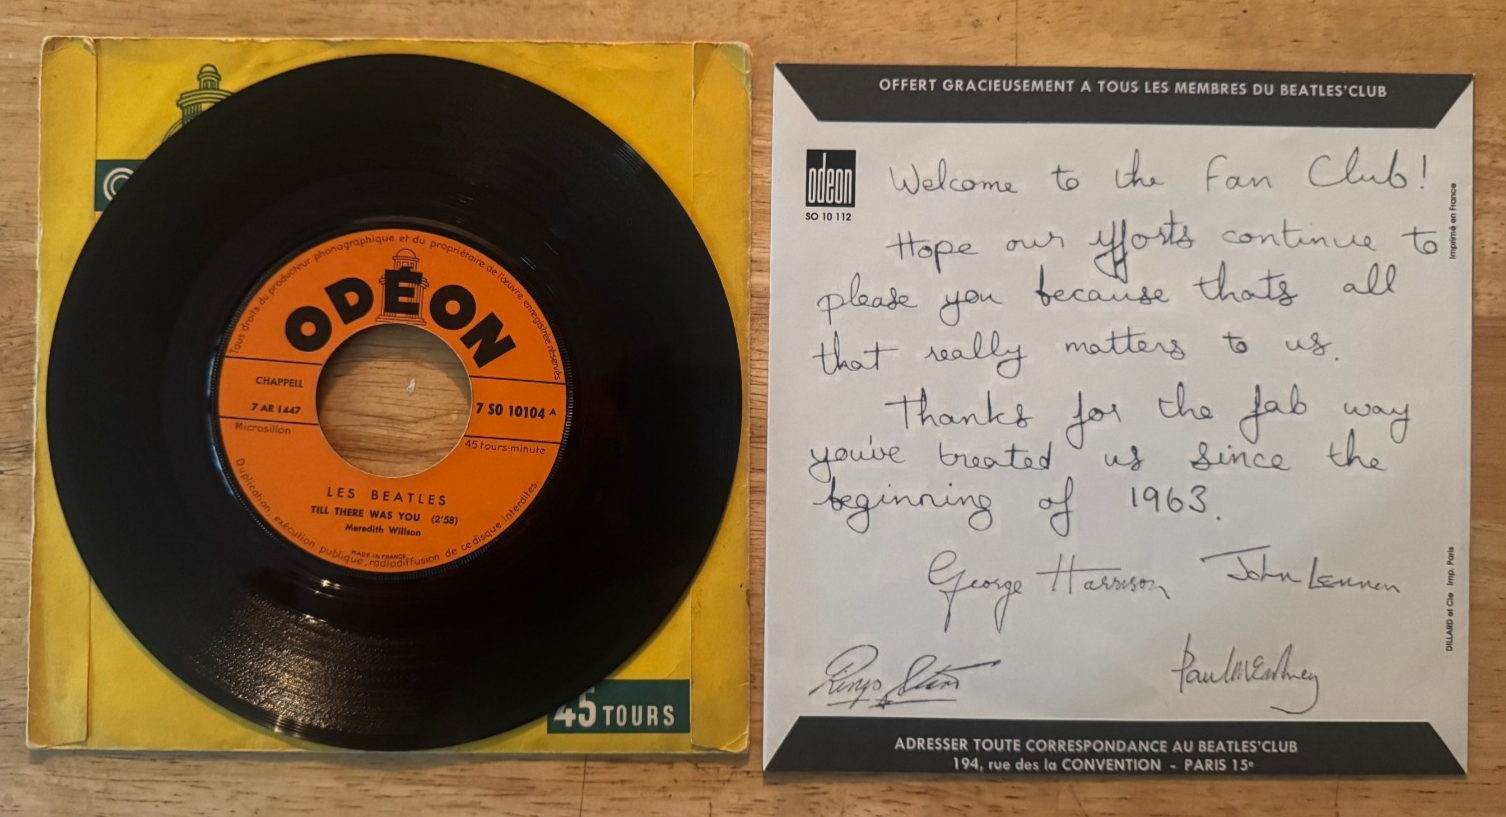 Tous droits du producteur phonographique et du propriétaire de l'œuvre enregistrée réservés
ODEON
CHAPPELL
7 AR 1447
7 SO 10104 A
Microsillon
45 tours-minute
LES BEATLES
TILL THERE WAS YOU (2'58)
Meredith Willson
MADE IN FRANCE
Duplication, exécution publique, radiodiffusion de ce disque interdites.
45 TOURS
OFFERT GRACIEUSEMENT A TOUS LES MEMBRES DU BEATLES'CLUB
odeon
SO 10 112
Imprimé en France
Welcome to the Fan Club!
Hope our efforts continue to
please you because thats all
that really matters to us.
Thanks for the fab way
you've treated us since the
beginning of 1963.
George Harrison John Lennon
Ringo Starr Paul McCartney
DILLARD et Cie Imp. Paris
ADRESSER TOUTE CORRESPONDANCE AU BEATLES'CLUB
194, rue des la CONVENTION - PARIS 15e